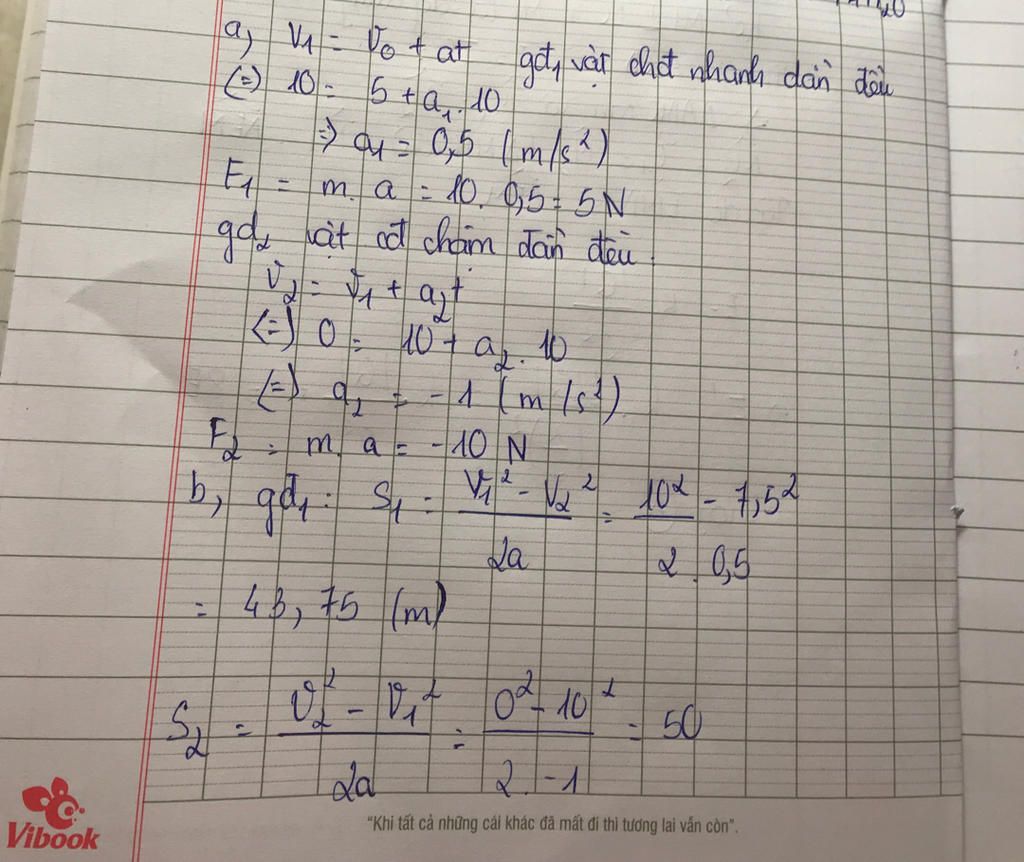 a, V₁ = V₀ + at gđ₁ vật chđ nhanh dần đều
(=) 10 = 5 + a₁.10
=) a₁ = 0,5 (m/s²)
F₁ = m. a = 10. 0,5 = 5N
gđ₂ vật cđ chậm dần đều.
V₂ = V₁ + a₂t
(=) 0 = 10 + a₂.10
(=) a₂ = -1 (m/s²)
F₂ = m. a = -10 N
b, gđ₁: S₁ = (V₁² - V₂²)/2a = 10² - 7,5²/2.0,5
= 43,75 (m)
S₂ = (V₂² - V₁²)/2a = (0² - 10²)/2.-1 = 50
Vibook
"Khi tất cả những cái khác đã mất đi thì tương lai vẫn còn".